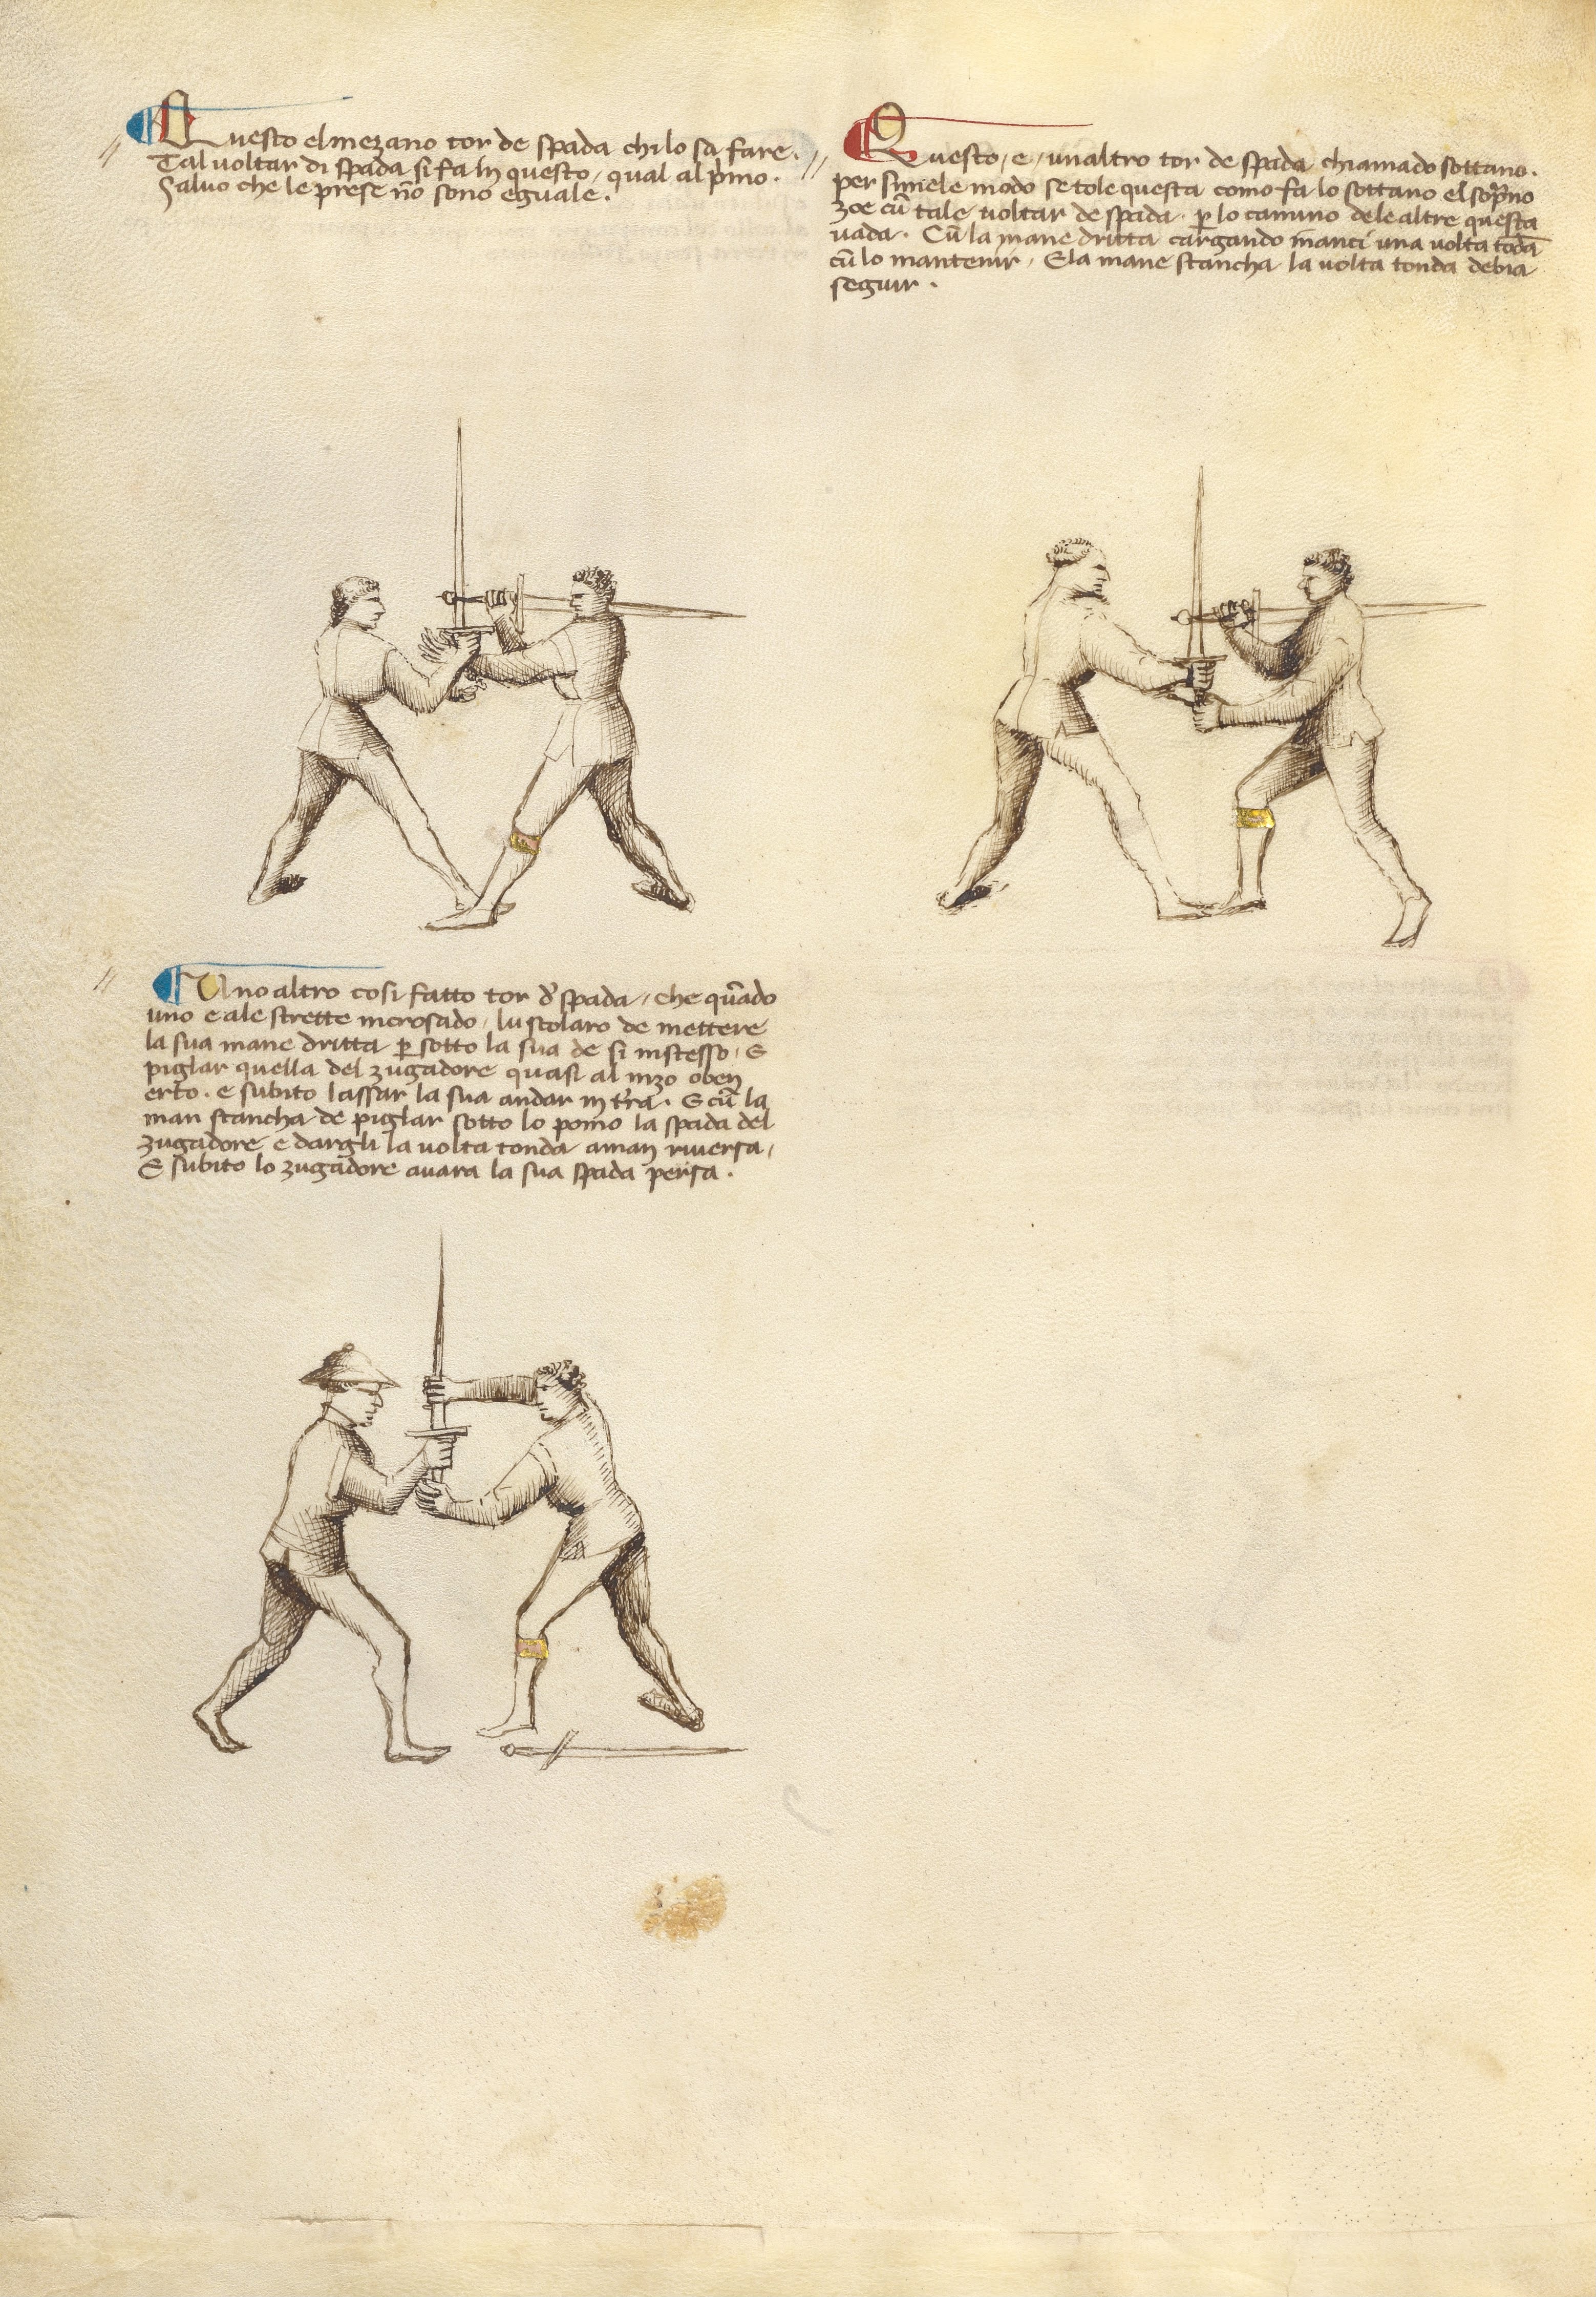 Questo el mezano tor de spada chi lo sa fare.
Tal voltar di spada si fa in questo, qual al p̃mo.
Salvo che le prese nõ sono eguale.
Questo, e, un altro tor de spada chiamado sottano.
per simele modo se tole questa como fa lo sottano el sop̃no
zoe cũ tale voltar de spada. ꝑ lo camino dele altre questa
vada. Cũ la mane dritta cargando inanci una volta tõda
cũ lo mantenir, E la mane stancha la volta tonda debia
seguir.
Uno altro cosi fatto tor d' spada, che quãdo
uno e ale strette incrosado, lu scolaro de mettere
la sua mane dritta ꝑ sotto la sua de si instesso, E
piglar quella del zugadore quasi al mzo o ben
erto. e subito lassar la sua andar in t'ra. E cũ la
man stancha de piglar sotto lo pomo la spada del
zugadore e dargli la volta tonda a man riversa,
E subito lo zugadore avara la sua spada persa.